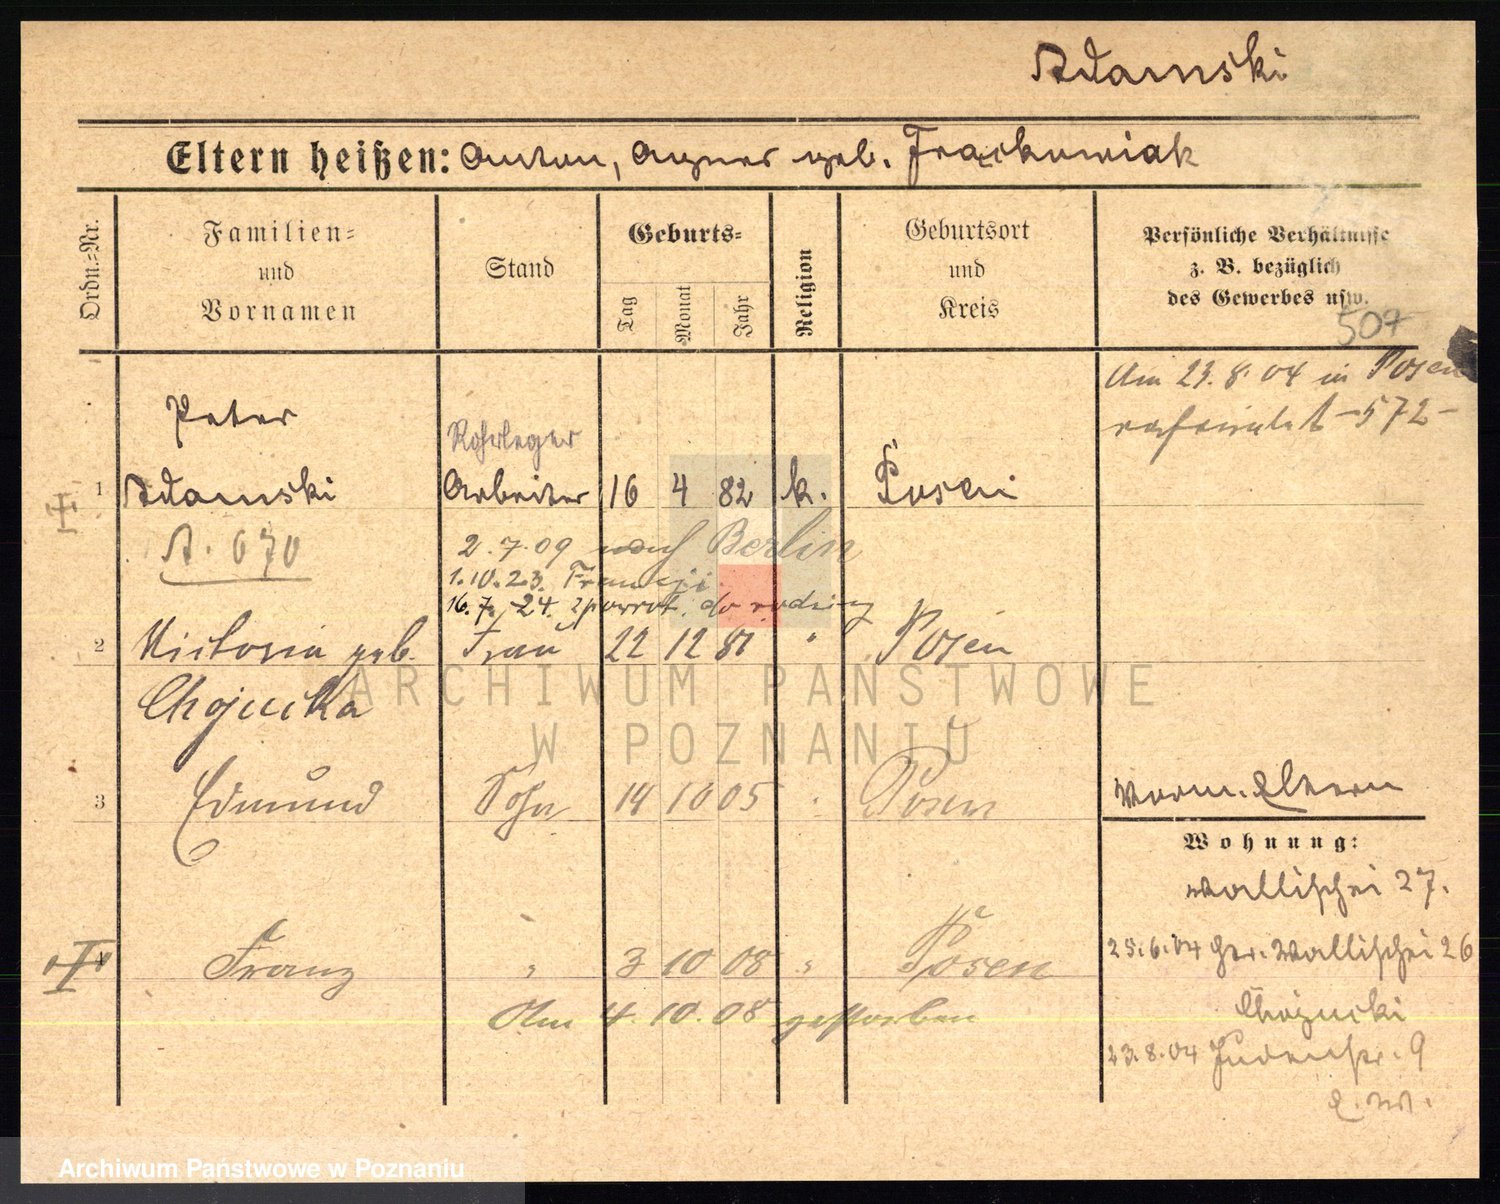 Adamski
Eltern heißen: Anton, Agnes geb. Frąckowiak
Ordn.-Nr.
Familien- und Vornamen
Stand
Geburts-
Tag
Monat
Jahr
Religion
Geburtsort und Kreis
Persönliche Verhältnisse
z. B. bezüglich
des Gewerbes usw.
507
Am 23.8.04 in Posen
verheiratet -572-
Peter
Rohrleger
1 Adamski Arbeiter 16 4 82 k. Posen
A. 670
2.7.09 nach Berlin
1.10.23. Francji.
16.7.24. zpowrot do rodziny
2 Victoria geb. Frau 22 12 81 " Posen
Chojnicka
3 Edmund Sohn 14 10 05 " Posen
Vorm. Eltern
Wohnung:
Wallischei 27.
4 Franz " 3 10 08 " Posen
25.6.04 Ger. Wallischei 26
Am 4.10.08 gestorben
23.8.04 Judenstr. 9
E. W.
ARCHIWUM PAŃSTWOWE
W POZNANIU
Archiwum Państwowe w Poznaniu